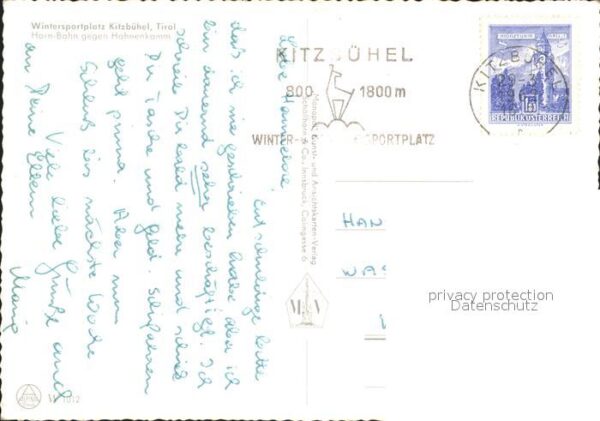 Wintersportplatz Kitzbühel, Tirol
Horn-Bahn gegen Hahnenkamm
KITZBÜHEL
800 - 1800 m
WINTER- SPORTPLATZ
KITZBÜHEL
REPUBLIK ÖSTERREICH
Liebe Hannelore, Entschuldige bitte
daß ich nie geschrieben habe aber ich
bin dauernd sehr beschäftigt. Ich
schreibe Dir bald mehr und schick
Dir Tasche und Geld. Schifahren
geht prima. Aber nun
Schluß bis nächste Woche
Viele liebe Grüße auch
an Deine Eltern
Maria
Monopol Kunst- und Ansichtskarten-Verlag
Schöllhorn & Co., Innsbruck, Colingasse 6
M. V
HAN
WAS
privacy protection
Datenschutz
W 1812